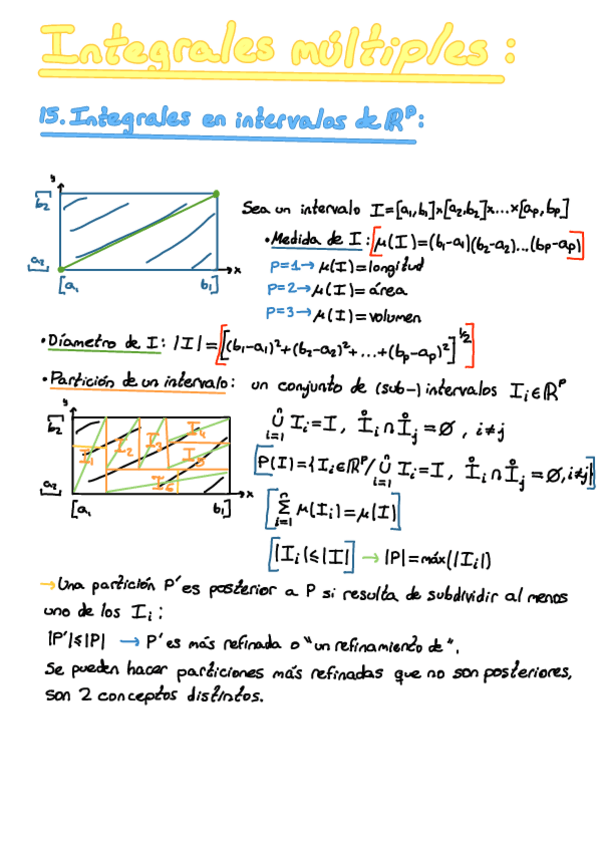 Integrales múltiples:
15. Integrales en intervalos de ℝᵖ:
y
b₂
a₂
x
[a₁ b₁]
Sea un intervalo I=[a₁,b₁]×[a₂,b₂]×...×[aₚ,bₚ]
• Medida de I: μ(I)=(b₁-a₁)(b₂-a₂)...(bₚ-aₚ)
P=1→ μ(I)=longitud
P=2→ μ(I)= área
P=3→ μ(I)=volumen
• Díametro de I: |I|=[(b₁-a₁)²+(b₂-a₂)²+...+(bₚ-aₚ)²]^½
• Partición de un intervalo: un conjunto de (sub-) intervalos Iᵢ∈ℝᵖ
y
b₂
a₂
I₁ I₂ I₃ I₄
I₅
I₆
x
[a₁ b₁]
∪ⁿᵢ₌₁ Iᵢ=I, I̊ᵢ∩I̊ⱼ=∅, i≠j
P(I)={Iᵢ∈ℝᵖ/ ∪ⁿᵢ₌₁ Iᵢ=I, I̊ᵢ∩I̊ⱼ=∅, i≠j}
∑ⁿᵢ₌₁ μ(Iᵢ)=μ(I)
|Iᵢ|≤|I| → |P|=máx(|Iᵢ|)
→ Una partición P' es posterior a P si resulta de subdividir al menos
uno de los Iᵢ:
|P'|≤|P| → P' es más refinada o "un refinamiento de".
Se pueden hacer particiones más refinadas que no son posteriores,
son 2 conceptos distintos.